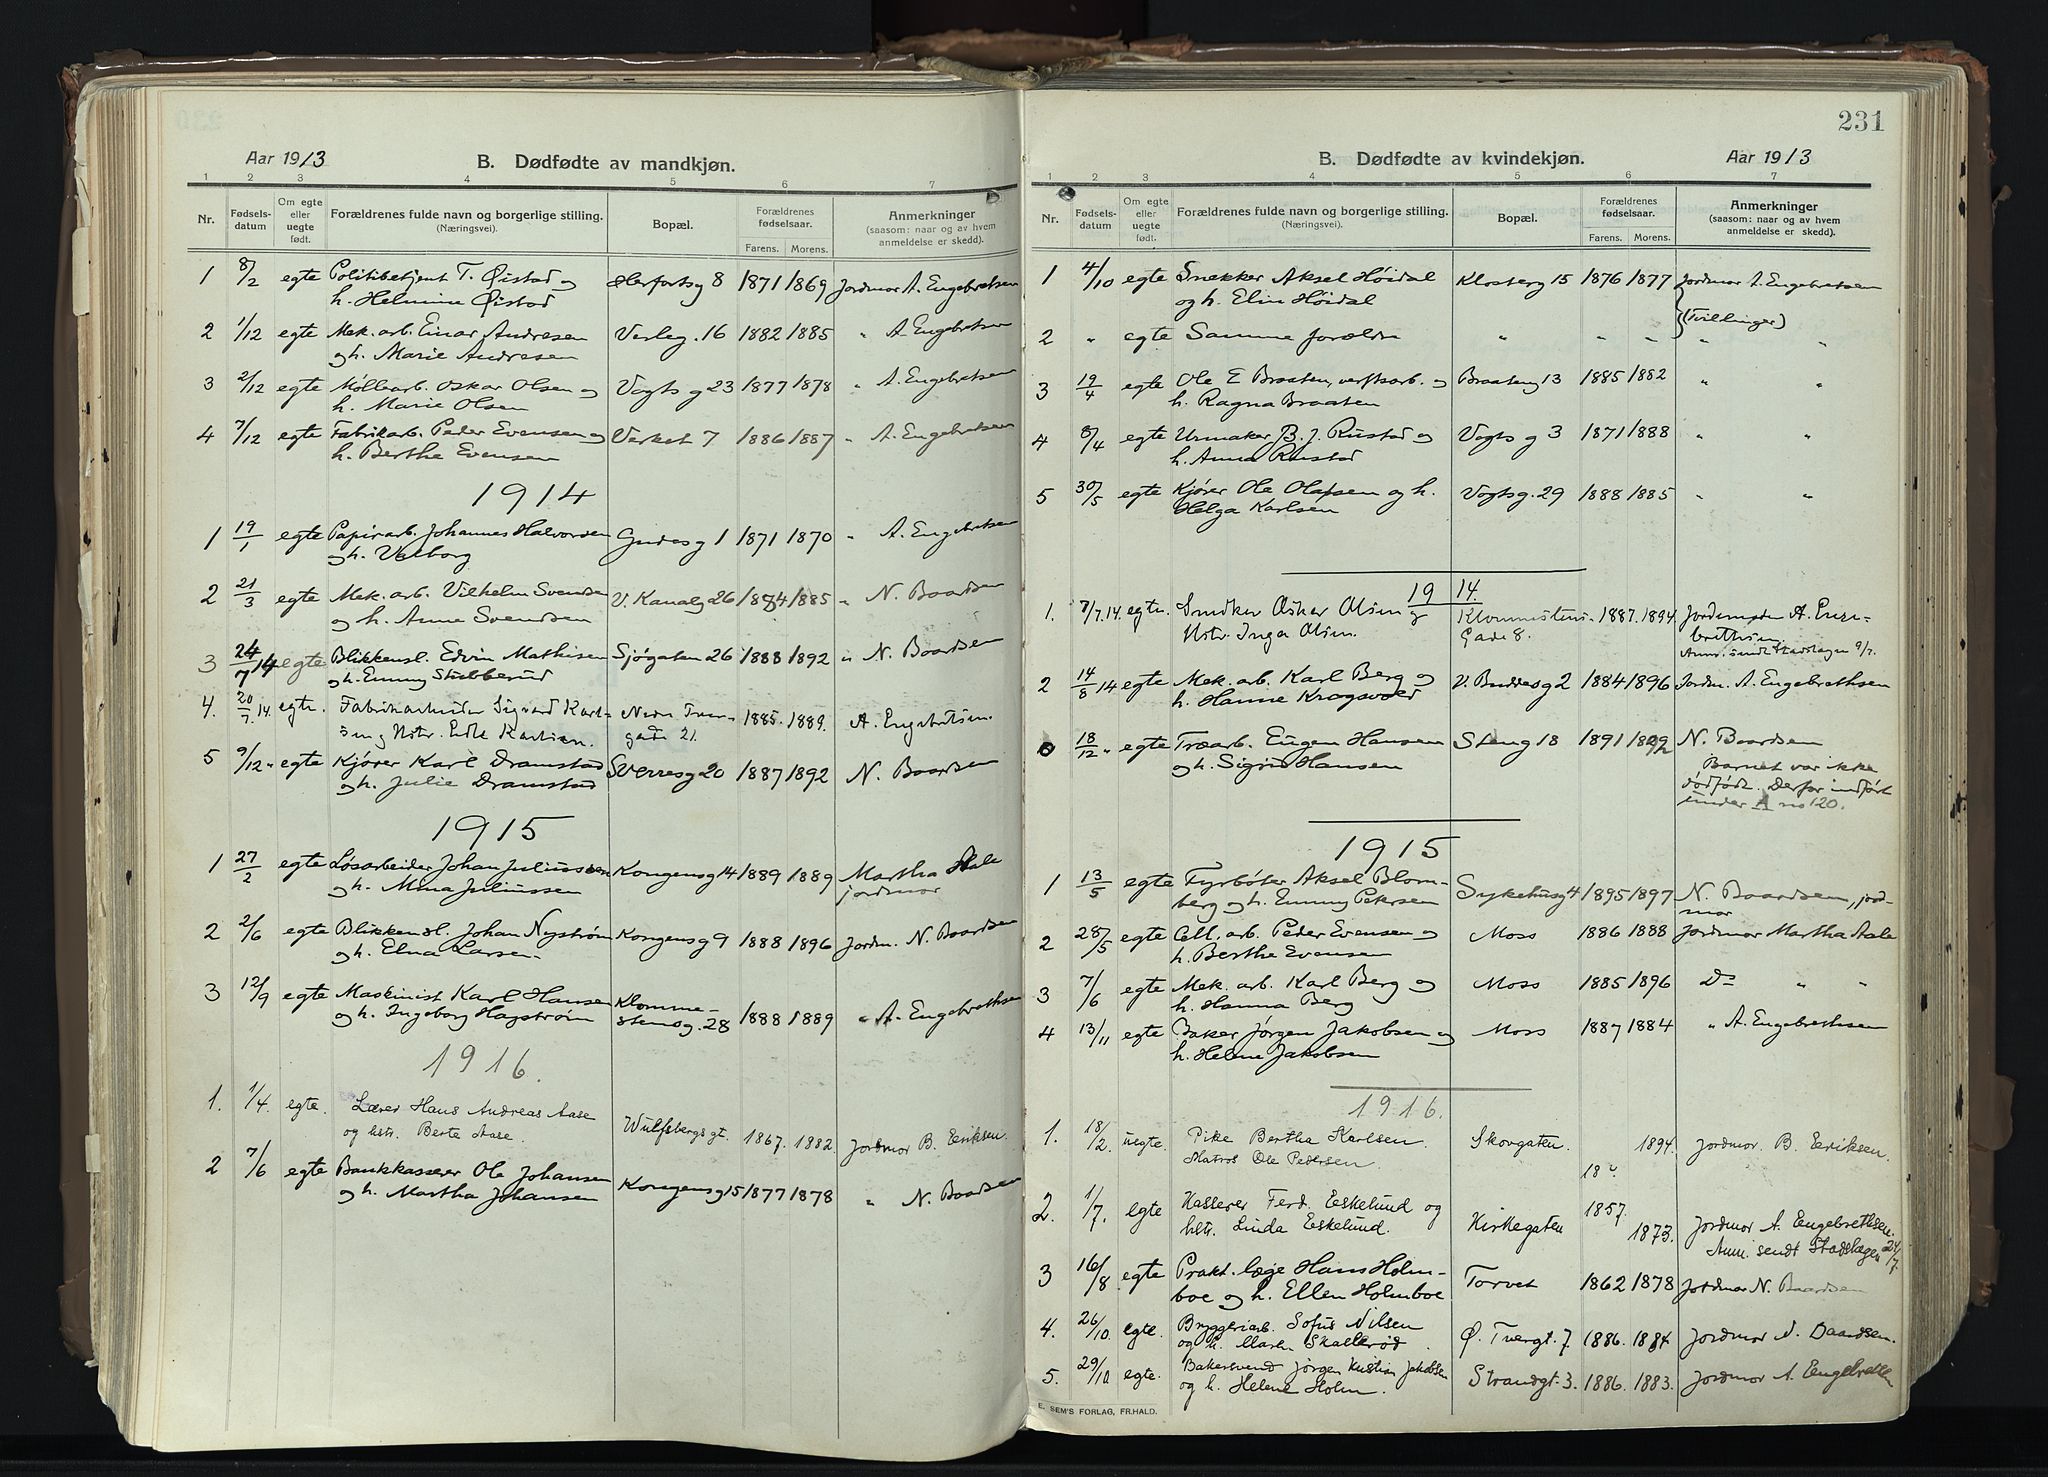 Aar 1913
B. Dødfødte av mandkjøn.
1 2 3 4 5 6 7
Nr. Fødsels-datum Om egte eller uegte født. Forældrenes fulde navn og borgerlige stilling. (Næringsvei). Bopæl. Forældrenes fødselsaar. Farens. Morens. Anmerkninger (saasom: naar og av hvem anmeldelse er skedd).
1 8/2 egte Politibetjent T. Øistad og Herfortsg 8 1871 1869 Jordmor A. Engebretsen
h. Helmine Øistad
2 1/12 egte Mek. arb. Einar Andresen Verleg. 16 1882 1885 " A. Engebretsen
og h. Marie Andresen
3 2/12 egte Møllearb. Oskar Olsen og Vogts g 23 1877 1878 " A. Engebretsen
h. Marie Olsen
4 7/12 egte Fabrikarb. Peder Evensen og Verket 7 1886 1887 " A. Engebretsen
h. Berthe Evensen
1914
1 19/1 egte Papirarb. Johannes Halvorsen Gudesg 1 1871 1870 " A. Engebretsen
og h. Valborg
2 21/3 egte Mek. arb. Vilhelm Svendsen V. Kanalg 26 1884 1885 " N. Baardsen
og h. Anna Svendsen
3 24/7 14 egte Blikkensl. Edvin Mathisen Sjøgaten 26 1888 1892 " N. Baardsen
og h. Emmy Stubberud
4. 20/7. 14. egte. Fabrikarbeider Sigvard Karl- Nedre Tver- 1885. 1889. A. Engebretsen.
sen og Hstr. Karlsen. gade 21.
5 9/12 " egte Kjører Karl Dramstad Sverresg 20 1887 1892 N. Baardsen
og h. Julie Dramstad
1915
1 27/2 egte Løsarbeider Johan Juliussen Kongensg 14 1889 1889 Martha Aale
og h. Mina Juliussen jordmor
2 2/6 egte Blikkensl. Johan Nystrøm Kongensg 9 1888 1896 Jordm. N. Baardsen
og h. Elna Larsen
3 12/9 egte Maskinist Karl Hansen Klomme- 1888 1889 " A. Engebrethsen
og h. Ingeborg Hagstrøm stensg. 28
1916.
1. 1/4. egte. Lærer Hans Andreas Aase Wulfsbergs gt. 1867. 1882. Jordmor B. Eeriksen.
og hstr. Berte Aase.
2 7/6 egte Bankkasserer Ole Johansen Kongensg 15 1877 1878 " N. Baardsen
og h. Martha Johansen
231
B. Dødfødte av kvindekjøn.
Aar 1913
1 2 3 4 5 6 7
Nr. Fødsels-datum Om egte eller uegte født. Forældrenes fulde navn og borgerlige stilling. (Næringsvei). Bopæl. Forældrenes fødselsaar. Farens. Morens. Anmerkninger (saasom: naar og av hvem anmeldelse er skedd).
1 4/10 egte Snekker Aksel Høidal Klosterg 15 1876 1877 Jordmor A. Engebretsen
og h. Elin Høidal (Tvillinger)
2 " egte Samme forældre " " " " "
3 19/4 egte Ole E Braaten, verftsarb. og Braateng 13 1885 1882 " "
h. Ragna Braaten
4 8/4 egte Urmaker B. J. Rustad og Vogts g 3 1871 1888 " "
h. Anna Rustad
5 30/5 egte Kjører Ole Olafsen og h. Vogtsg. 29 1888 1885 " "
Helga Karlsen
1914.
1. 7/7. 14. egte. Snedker Asker Olsen og Klommestens- 1887. 1894. Jordemoder A. Enge-
Hstr. Inga Olsen. Gade 8. brethsen
Anm. sendt Stadslægen 9/7.
2 14/8 14 egte Mek. arb. Karl Berg og V. Buddesg 2 1884 1896 Jordm. A. Engebrethsen
h. Hanne Krogsvold
18/12 " egte Træarb. Eugen Hansen Steng 18 1891 1892 N. Baardsen
og h. Sigrid Hansen Barnet var ikke
dødfødt. Derfor indført
under A no 120.
1915
1 13/5 egte Fyrbøter Aksel Blom- Sykehusg 4 1895 1897 N. Baardsen, jord-
berg og h. Emmy Petersen mor
2 28/5 egte Cell. arb. Peder Evensen og Moss 1886 1888 Jordmor Martha Aale
h. Berthe Evensen
3 7/6 egte Mek. arb. Karl Berg og Moss 1885 1896 Do " "
h. Hanna Berg
4 13/11 egte Baker Jørgen Jakobsen og Moss 1887 1884 " A. Engebrethsen
h. Helene Jakobsen
1916.
1. 18/2. uegte. Pike Bertha Karlsen. Skovgaten. 1894. Jordmor B. Eeriksen.
Matros Ole Pedersen. 18
2. 1/7. egte Kasserer Ferd. Eskelund og Kirkegaten 1857. 1873. Jordmor A. Engebrethsen.
hstr. Linda Eskelund. Anm. sendt Stadslægen 24/7.
3 16/8. egte Prakt. læge Hans Holm- Torvet 1862 1878 Jordmor N. Baardsen
boe og h. Ellen Holmboe
4. 26/10. egte. Bryggeriarb. Sofus Nilsen Ø. Tvergt. 7. 1886. 1884 Jordmor N. Baardsen.
og h. Maren Skallerød.
5. 29/10. egte. Bakersvend Jørgen Kristian Jakobsen Strandgt. 3. 1886. 1883. Jordmor A. Engebretsen
og h. Helene Holm.
E. SEM'S FORLAG, FR.HALD.